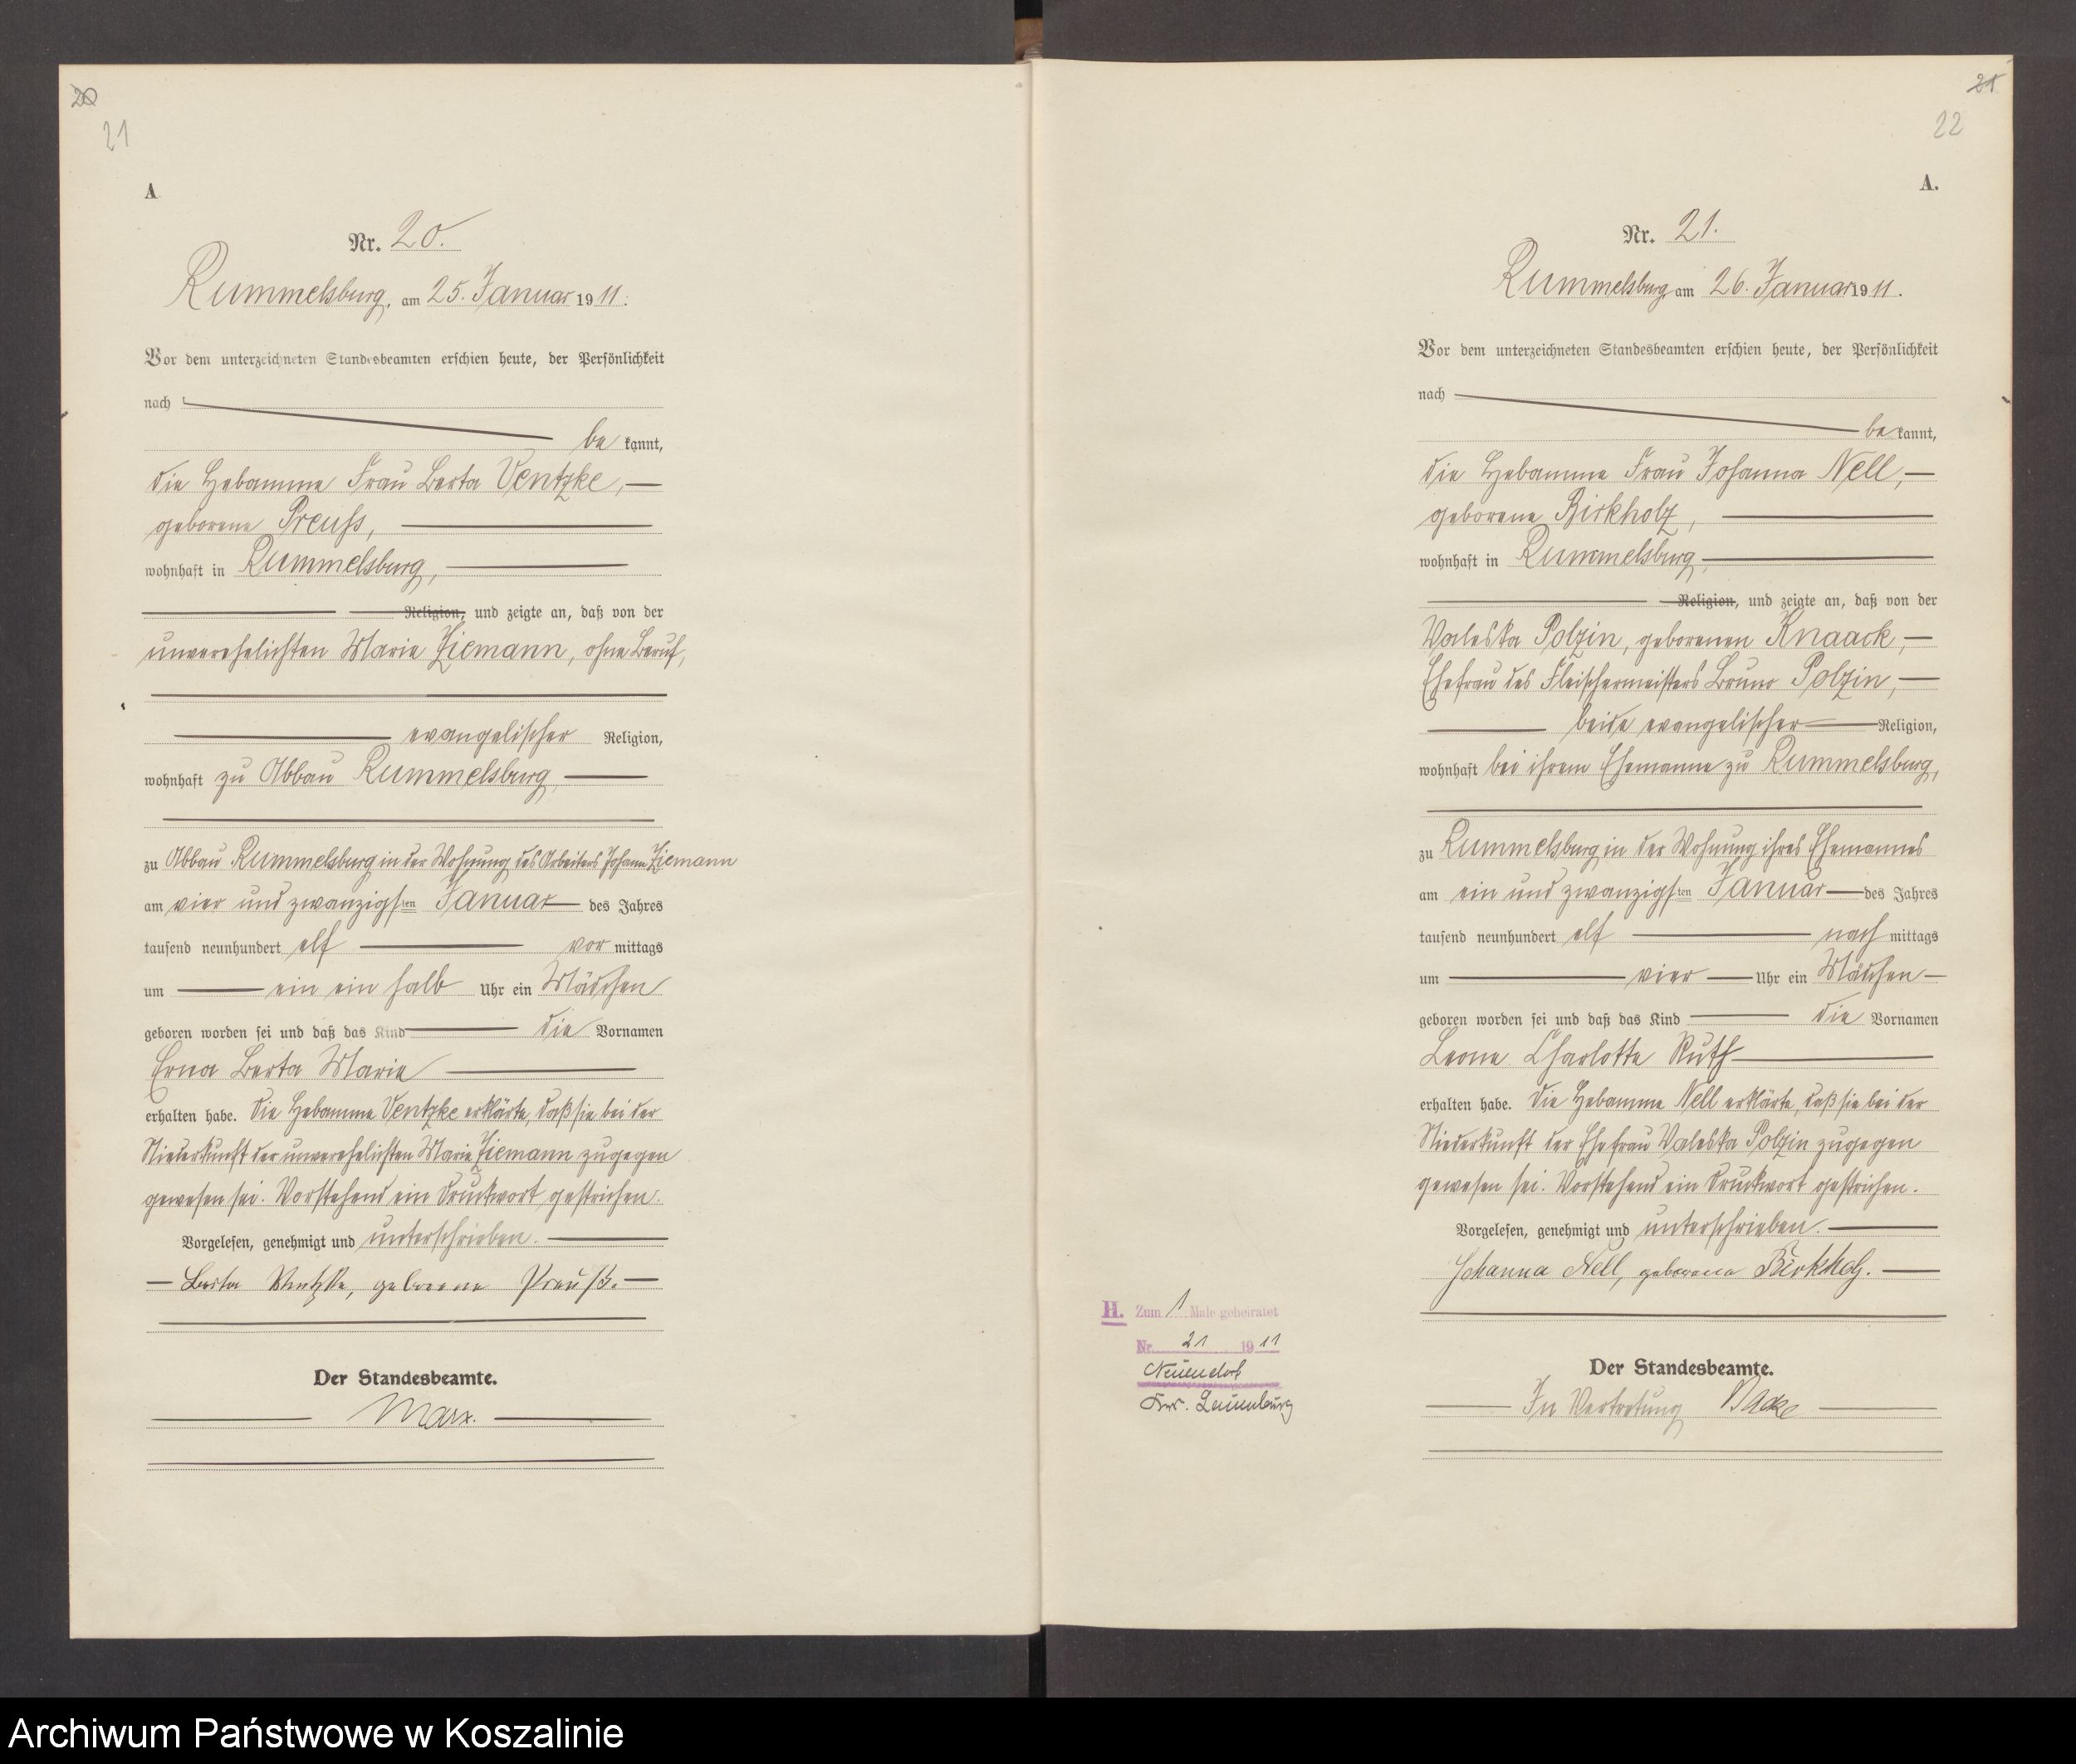 20
21
A
Nr. 20.
Rummelsburg, am 25. Januar 1911.
Vor dem unterzeichneten Standesbeamten erschien heute, der Persönlichkeit
nach
be kannt,
die Hebamme Frau Berta Ventzke,
geborene Preuss,
wohnhaft in Rummelsburg,
Religion, und zeigte an, daß von der
unverehelichten Marie Ziemann, ohne Beruf,
evangelischer Religion,
wohnhaft zu Abbau Rummelsburg
zu Abbau Rummelsburg in der Wohnung des Arbeiters Johann Ziemann
am vier und zwanzigsten Januar des Jahres
tausend neunhundert elf vor mittags
um ein ein halb Uhr ein Mädchen
geboren worden sei und daß das Kind die Vornamen
Erna Berta Marie
erhalten habe. Die Hebamme Ventzke erklärte, daß sie bei der
Niederkunft der unverehelichten Marie Ziemann zugegen
gewesen sei. Vorstehend ein Druckwort gestrichen.
Vorgelesen, genehmigt und unterschrieben.
Berta Ventzke, geborene Preuß.
Der Standesbeamte.
Marx.
21
22
A.
Nr. 21.
Rummelsburg, am 26. Januar 1911.
Vor dem unterzeichneten Standesbeamten erschien heute, der Persönlichkeit
nach
be kannt,
die Hebamme Frau Johanna Nell,
geborene Birkholz,
wohnhaft in Rummelsburg,
Religion, und zeigte an, daß von der
Valeska Polzin, geborenen Knaack,
Ehefrau des Fleischermeisters Bruno Polzin,
beide evangelischer Religion,
wohnhaft bei ihrem Ehemanne zu Rummelsburg,
zu Rummelsburg in der Wohnung ihres Ehemannes
am ein und zwanzigsten Januar des Jahres
tausend neunhundert elf nach mittags
um vier Uhr ein Mädchen
geboren worden sei und daß das Kind die Vornamen
Leone Charlotte Ruth
erhalten habe. Die Hebamme Nell erklärte, daß sie bei der
Niederkunft der Ehefrau Valeska Polzin zugegen
gewesen sei. Vorstehend ein Druckwort gestrichen.
Vorgelesen, genehmigt und unterschrieben.
Johanna Nell, geborene Birkholz.
Der Standesbeamte.
In Vertretung
H. Zum 1 Male geheiratet
Nr. 21 1911
Neuendorf
Krs. Lauenburg
Archiwum Państwowe w Koszalinie